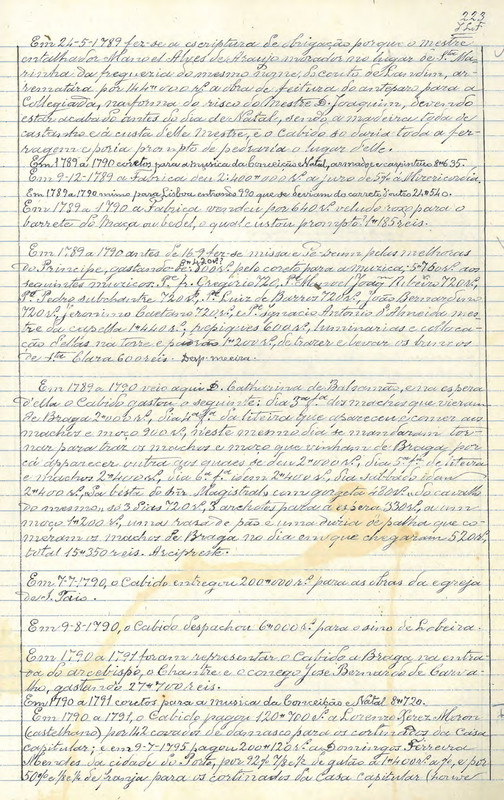 223
Em 24-5-1789 fez-se a escriptura de obrigação porque o mestre
entalhador Manoel Alves de Araujo morador no lugar de Sta Ma-
rinha da freguezia do mesmo nome, do couto de Randim, ar-
rematára por 144$000 rs a obra de factura do anteparo para a
Collegiada, na forma do risco do Mestre D. Joaquim, devendo
estar acabado antes do dia de Natal, sendo a madeira toda de
castanho e á custa delle Mestre, e o cabido só daria toda a fer-
ragem e poria prompto de pedraria o lugar delle.
Em 1789 a 1790 coretos para a musica da Conceição Natal, armação e carpinteiro 8$635.
Em 9-12-1789 a Fabrica deu 2:400$000 rs a juro de 5% á Misericordia.
Em 1789 a 1790 mimo para Lisboa entrando 990 que se deviam do carreto d'outro 24$540.
Em 1789 a 1790 a Fabrica vendeu por 640 rs veludo roxo para o
barrete do Maça ou bedel, o qual custou prompto 1$185 reis.
Em 1789 a 1790 antes de 16-9 fez-se missa e Te-Deum pelas melhoras
do Principe, gastando-se: pelo coreto para a muzica; 5$150 rs aos
seguintes muzicos, Pe. Gregorio 720, Pe Manoel João Ribeiro 720 rs,
Pe Pedro subchantre 720 rs, Pe Luiz de Barros 720 rs, João Bernardino
720 rs, Jeronimo Caetano 720 rs, e Pe Ignacio Antonio d'Almeida mes-
tre da capella 1$440 rs; repiques 600 rs, luminarias e colloca-
ção dellas na torre e 1$200 rs, de trazer e levar os bancos
de Sta Clara 600 reis. Desp. meeira.
Em 1789 a 1790 veio aqui D. Catharina de Balsemão, e na espera
d'ella o Cabido gastou o seguinte: dia 3ª fª dos machos que vieram
de Braga 2$000 rs, dia 4ª fª da liteira que appareceu e comer aos
machos e moço 900 rs, neste mesmo dia se mandaram tor-
nar para traz os machos e moço que vinham de Braga por
cá apparecer outra aos quaes se deu 2$000 rs, dia 5ª fª de liteira
e machos 2$400 rs, dia 6ª fª idem 2$400 rs, dia sabbado idem
2$400 rs, da besta do Snr. Magistral, com gorgeta 420 rs, do cavallo
do mesmo, só 3 dias 720 rs, 3 archotes para a espera 330 rs, a um
moço 1$200 rs, uma rasa de pão e uma duzia de palha que co-
meram os machos de Braga no dia em que chegaram 520 rs,
total 15$350 reis. Arcipreste.
Em 7-7-1790, o Cabido entregou 200$000 rs para as obras da egreja
de S. Paio.
Em 9-8-1790, o Cabido despachou 6$000 rs para o sino de Lobeira.
Em 1790 a 1791 foram representar o Cabido a Braga na entra-
da do arcebispo, o Chantre e o conego José Bernardo de Carva-
lho, gastando 27$700 reis.
Em 1790 a 1791 coretos para a musica da Conceição e Natal 8$720.
Em 1790 a 1791, o Cabido pagou 120$700 rs a Lorenzo Perez Moron
(castelhano) por 142 covados de damasco para os cortinados da Casa
capitular; e em 9-7-1795 pagou 200$120 rs a Domingos Ferreira
Mendes da cidade do Porto, por 92 de galão a 1$400 rs, e por
50 de franja para os cortinados da casa capitular (houve